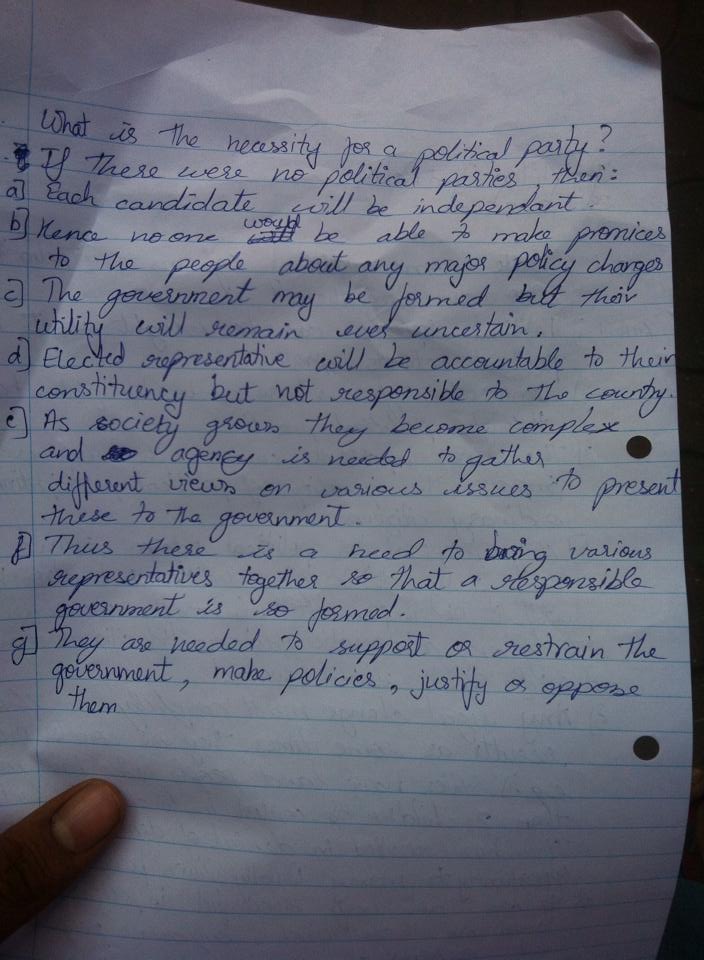 What is the necessity for a political party?
If there were no political parties then:
a] Each candidate will be independant.
b] Hence no one would be able to make promices
to the people about any major policy changes
c] The government may be formed but their
utility will remain ever uncertain.
d] Elected representative will be accountable to their
constituency but not responsible to the country.
e] As society grows they become complex
and agency is needed to gather
different views on various issues to present
these to the government.
f] Thus there is a need to bring various
representatives together so that a responsible
government is so formed.
g] They are needed to support or restrain the
government, make policies, justify or oppose
them